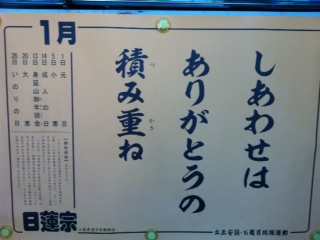 しあわせは
ありがとうの
積み重ね
つ かさ
1月
1日 元旦
5日 小寒
14日 成人の日
13日 身延山御年頭会
20日 大寒
28日 いのりの日
日蓮宗
立正安国・お題目結縁運動